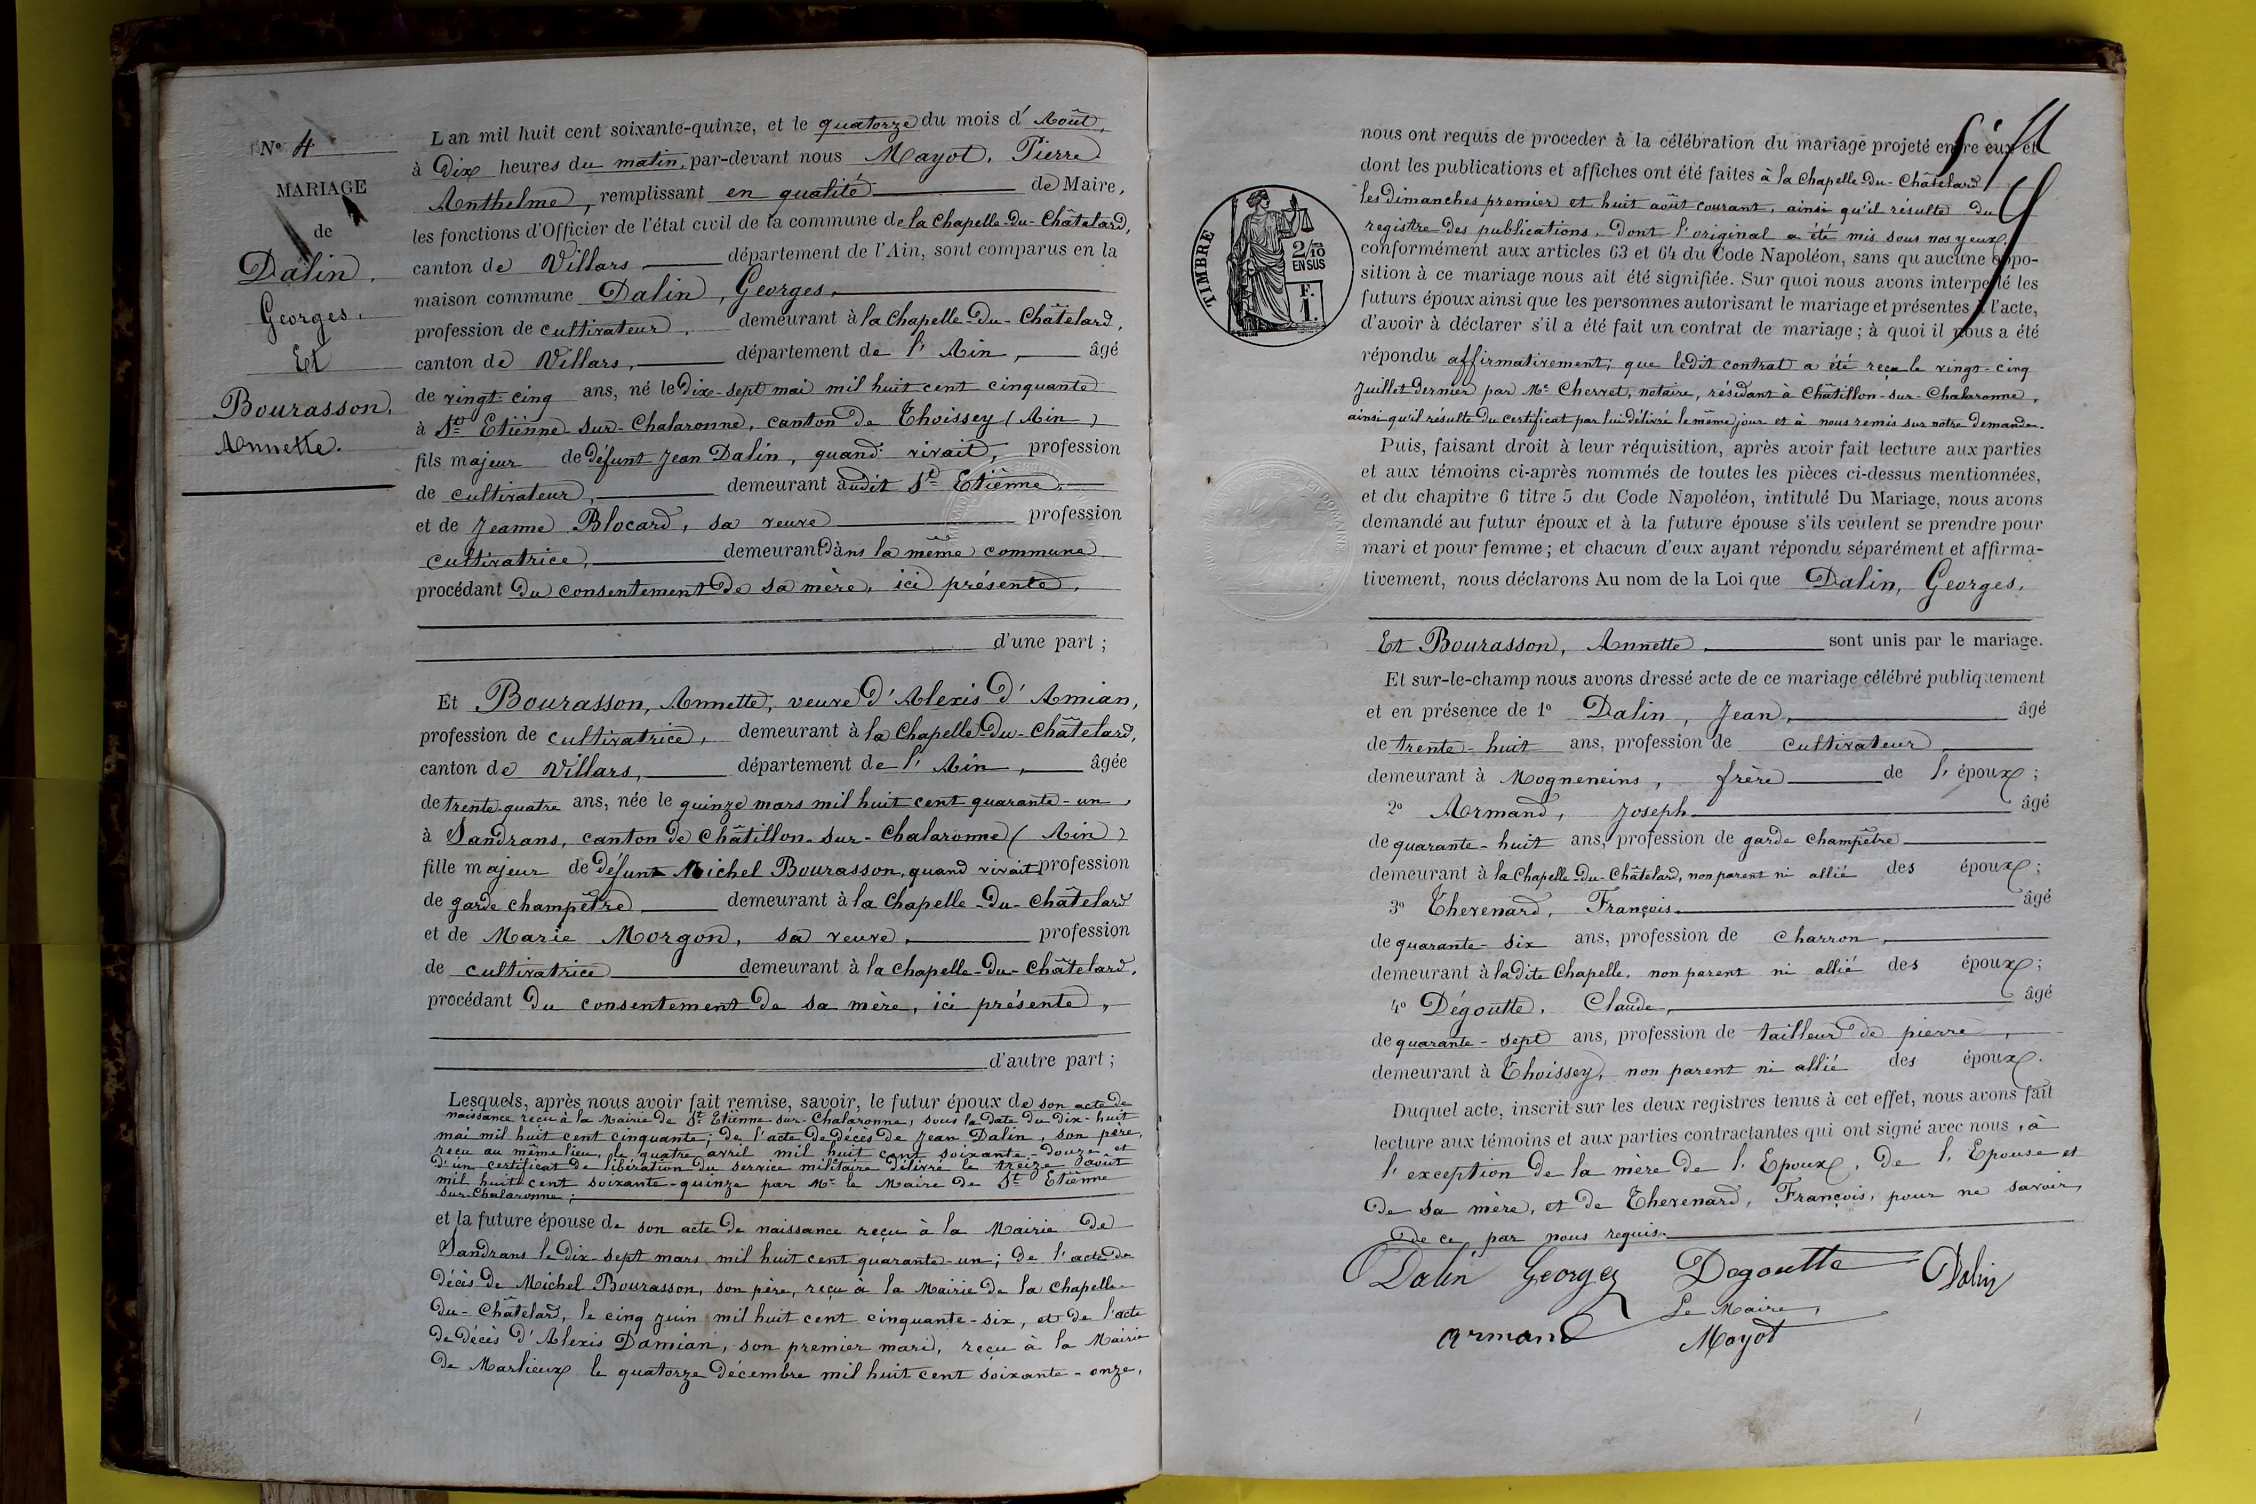 No 4
MARIAGE
de
Dalin,
Georges,
Et
Bourasson,
Annette.
L'an mil huit cent soixante-quinze, et le quatorze du mois d'Août,
à Dix heures du matin, par-devant nous Mayot, Pierre
Anthelme, remplissant en qualité de Maire,
les fonctions d'Officier de l'état civil de la commune de la Chapelle-Du-Châtelard,
canton de Villars, département de l'Ain, sont comparus en la
maison commune Dalin, Georges,
profession de cultivateur, demeurant à la Chapelle-Du-Châtelard,
canton de Villars, département de l'Ain, âgé
de vingt-cinq ans, né le Dix-sept mai mil huit cent cinquante
à St Etienne-sur-Chalaronne, canton de Thoissey (Ain)
fils majeur de défunt Jean Dalin, quand vivait, profession
de cultivateur, demeurant audit St Etienne,
et de Jeanne Blocard, sa veuve profession
cultivatrice, demeurant Dans la même commune
procédant du consentement de sa mère, ici présente,
d'une part ;
Et Bourasson, Annette, veuve d'Alexis d'Amian,
profession de cultivatrice, demeurant à la Chapelle-Du-Châtelard,
canton de Villars, département de l'Ain, âgée
de trente-quatre ans, née le quinze mars mil huit cent quarante-un,
à Sandrans, canton de Châtillon-sur-Chalaronne (Ain)
fille majeur de défunt Michel Bourasson, quand vivait profession
de garde champêtre demeurant à la Chapelle-Du-Châtelard
et de Marie Morgon, sa veuve, profession
de cultivatrice demeurant à la Chapelle-Du-Châtelard,
procédant du consentement de sa mère, ici présente,
d'autre part ;
Lesquels, après nous avoir fait remise, savoir, le futur époux de son acte de
naissance reçu à la Mairie de St Etienne-sur-Chalaronne, sous la date du dix-huit
mai mil huit cent cinquante; de l'acte de décès de Jean Dalin, son père,
reçu au même lieu, le quatre avril mil huit cent soixante-douze et
d'un certificat de libération du service militaire délivré le treize août
mil huit cent soixante-quinze par Mr le Maire de St Etienne
sur-Chalaronne;
et la future épouse de son acte de naissance reçu à la Mairie de
Sandrans le dix-sept mars mil huit cent quarante-un; de l'acte de
décès de Michel Bourasson, son père, reçu à la Mairie de la Chapelle-
Du-Châtelard, le cinq juin mil huit cent cinquante-six, et de l'acte
de décès d'Alexis Damian, son premier mari, reçu à la Mairie
de Marlieux le quatorze décembre mil huit cent soixante-onze,
TIMBRE
2/10
EN SUS
F.
1.
nous ont requis de proceder à la célébration du mariage projeté entre eux et
dont les publications et affiches ont été faites à la Chapelle-Du-Châtelard
les dimanches premier et huit août courant, ainsi qu'il résulte du
registre des publications, dont l'original a été mis sous nos yeux,
conformément aux articles 63 et 64 du Code Napoléon, sans qu'aucune oppo-
sition à ce mariage nous ait été signifiée. Sur quoi nous avons interpellé les
futurs époux ainsi que les personnes autorisant le mariage et présentes à l'acte,
d'avoir à déclarer s'il a été fait un contrat de mariage ; à quoi il nous a été
répondu affirmativement; que ledit contrat a été reçu le vingt-cinq
Juillet dernier par Me Chervet, notaire, résidant à Châtillon-sur-Chalaronne,
ainsi qu'il résulte du certificat par lui délivré le même jour et à nous remis sur notre demande.
Puis, faisant droit à leur réquisition, après avoir fait lecture aux parties
et aux témoins ci-après nommés de toutes les pièces ci-dessus mentionnées,
et du chapitre 6 titre 5 du Code Napoléon, intitulé Du Mariage, nous avons
demandé au futur époux et à la future épouse s'ils veulent se prendre pour
mari et pour femme ; et chacun d'eux ayant répondu séparément et affirma-
tivement, nous déclarons Au nom de la Loi que Dalin, Georges,
Et Bourasson, Annette, sont unis par le mariage.
Et sur-le-champ nous avons dressé acte de ce mariage célébré publiquement
et en présence de 1o Dalin, Jean, âgé
de trente-huit ans, profession de cultivateur,
demeurant à Mogneneins, frère de l'époux ;
2o Armand, Joseph âgé
de quarante-huit ans, profession de garde champêtre
demeurant à la Chapelle-Du-Châtelard, non parent ni allié des époux ;
3o Thevenard, François âgé
de quarante-six ans, profession de charron,
demeurant à ladite Chapelle, non parent ni allié des époux ;
4o Dégoutte, Claude, âgé
de quarante-sept ans, profession de tailleur de pierre,
demeurant à Thoissey, non parent ni allié des époux.
Duquel acte, inscrit sur les deux registres tenus à cet effet, nous avons fait
lecture aux témoins et aux parties contractantes qui ont signé avec nous, à
l'exception de la mère de l'Epoux, de l'Epouse et
de sa mère, et de Thevenard, François, pour ne savoir,
de ce par nous requis.
Dalin Georges Degoutte Dalin
Le Maire,
armand Mayot